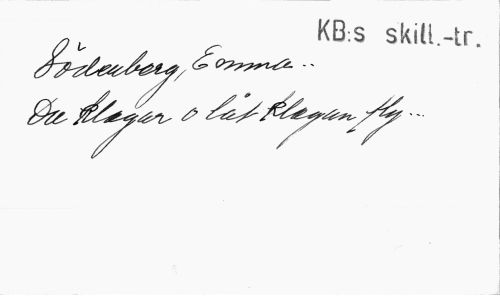 KB:s skill.-tr.
Södenberg, Emma..
Du klagar o låt klagan fly...